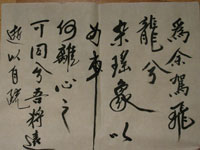 為余駕飛
龍兮
雜瑤象以
為車
何離心之
可同兮吾將遠
逝以自疏